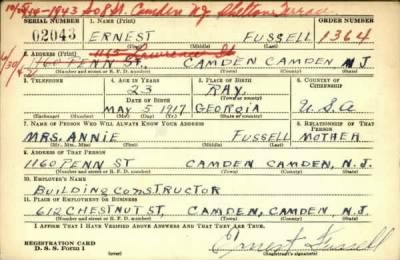 1943 208 N. Camden NJ
SERIAL NUMBER 1. Name (Print) ORDER NUMBER
02043 ERNEST FUSSELL 1364
(First) (Middle) (Last)
2. Address (Print)
1160 PENN ST. CAMDEN CAMDEN N.J.
(Number and street or R. F. D. number) (Town) (County) (State)
3. Telephone 4. Age in Years 5. Place of Birth 6. Country of Citizenship
23 RAY,
Date of Birth (Town or county)
MAY 5 1917 GEORGIA U.S.A
(Exchange) (Number) (Mo.) (Day) (Yr.) (State or country)
7. Name of Person Who Will Always Know Your Address 8. Relationship of That Person
MRS. ANNIE FUSSELL MOTHER
(Mr., Mrs., Miss) (First) (Middle) (Last)
9. Address of That Person
1160 PENN ST CAMDEN CAMDEN, N.J.
(Number and street or R. F. D. number) (Town) (County) (State)
10. Employer's Name
BUILDING CONSTRUCTOR
11. Place of Employment or Business
612 CHESTNUT ST, CAMDEN, CAMDEN, N.J.
(Number and street or R. F. D. number) (Town) (County) (State)
I Affirm That I Have Verified Above Answers and That They Are True.
REGISTRATION CARD
D. S. S. Form 1
Ernest Fussell
(Registrant's signature)